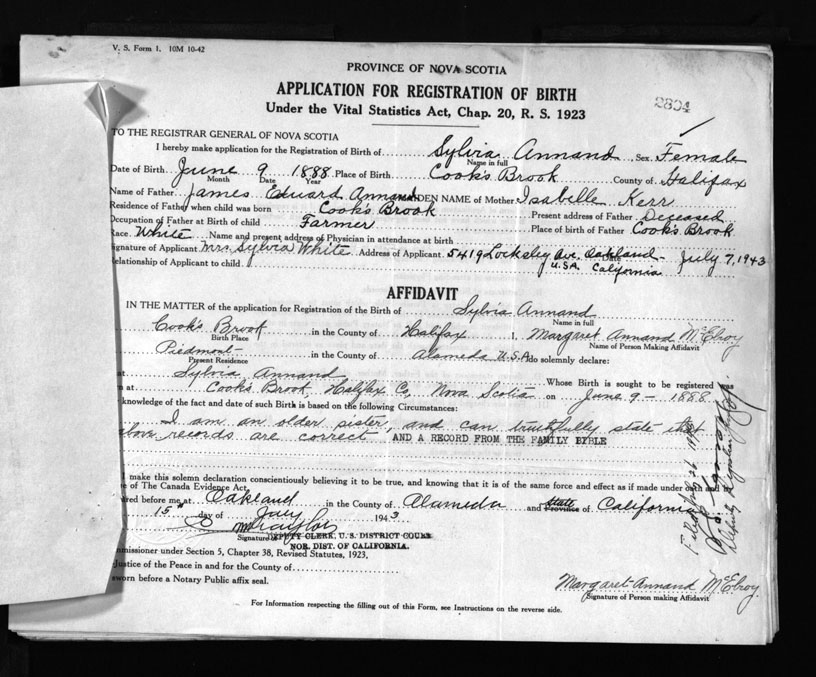 V. S. Form 1. 10M 10-42
PROVINCE OF NOVA SCOTIA
APPLICATION FOR REGISTRATION OF BIRTH
2804
Under the Vital Statistics Act, Chap. 20, R. S. 1923
TO THE REGISTRAR GENERAL OF NOVA SCOTIA
I hereby make application for the Registration of Birth of Sylvia Annand Sex Female
Name in full
Date of Birth June 9 1888 Place of Birth Cook's Brook County of Halifax
Month Date Year
Name of Father James Eduard Annand MAIDEN NAME of Mother Isabelle Kerr
Residence of Father when child was born Cook's Brook Present address of Father Deceased
Occupation of Father at Birth of child Farmer Place of birth of Father Cook's Brook
Race White Name and present address of Physician in attendance at birth
Signature of Applicant Mrs Sylvia White Address of Applicant 5419 Locksley Ave. Oakland Date July 7, 1943
Relationship of Applicant to child U.S.A. California
AFFIDAVIT
IN THE MATTER of the application for Registration of the Birth of Sylvia Annand
Name in full
Cook's Brook in the County of Halifax I, Margaret Annand McElroy
Birth Place Name of Person Making Affidavit
Piedmont in the County of Alameda U.S.A do solemnly declare:
Present Residence
at Sylvia Annand Whose Birth is sought to be registered was
n at Cook's Brook, Halifax Co, Nova Scotia on June 9 - 1888
knowledge of the fact and date of such Birth is based on the following Circumstances:
I am an older sister, and can truthfully state that
above records are correct AND A RECORD FROM THE FAMILY BIBLE
make this solemn declaration conscientiously believing it to be true, and knowing that it is of the same force and effect as if made under oath and
e of The Canada Evidence Act.
red before me at Oakland in the County of Alameda and State Province of California
15 day of July 1943
Signature of
DEPUTY CLERK, U. S. DISTRICT COURT
NOR. DIST. OF CALIFORNIA.
mmissioner under Section 5, Chapter 38, Revised Statutes, 1923,
Justice of the Peace in and for the County of
sworn before a Notary Public affix seal.
Margaret Annand McElroy
Signature of Person making Affidavit
For Information respecting the filling out of this Form, see Instructions on the reverse side.
Filed
Deputy Registrar